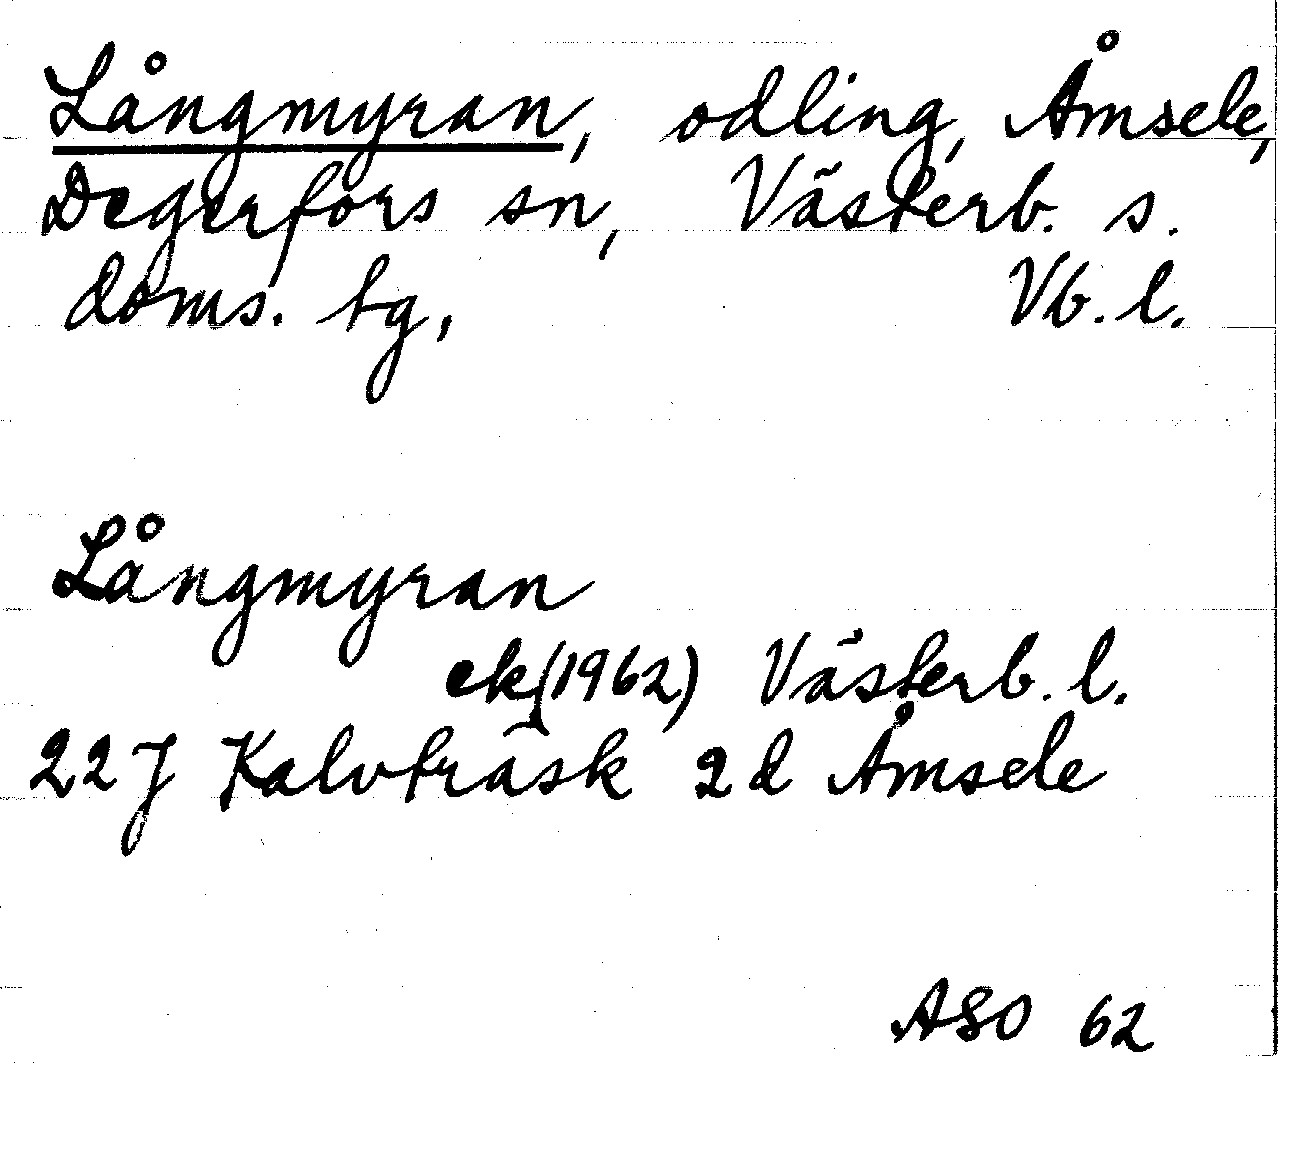 Långmyran, odling, Åmsele,
Degerfors sn, Västerb. s.
doms. tg, Vb. l.
Långmyran
ek (1962) Västerb. l.
22J Kalvträsk 2d Åmsele
ASO 62